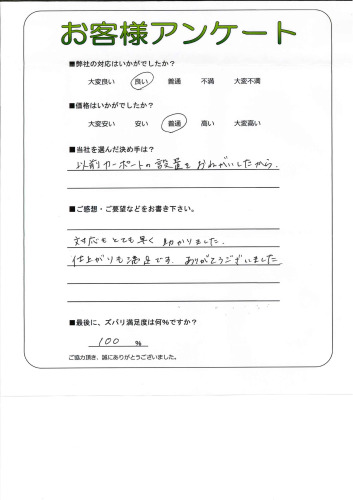 お客様アンケート
■弊社の対応はいかがでしたか？
大変良い 良い 普通 不満 大変不満
■価格はいかがでしたか？
大変安い 安い 普通 高い 大変高い
■当社を選んだ決め手は？
以前カーポートの設置をおねがいしたから.
■ご感想・ご要望などをお書き下さい。
対応もとても早く助かりました.
仕上がりも満足です. ありがとうございました
■最後に、ズバリ満足度は何%ですか？
100 %
ご協力頂き、誠にありがとうございました。